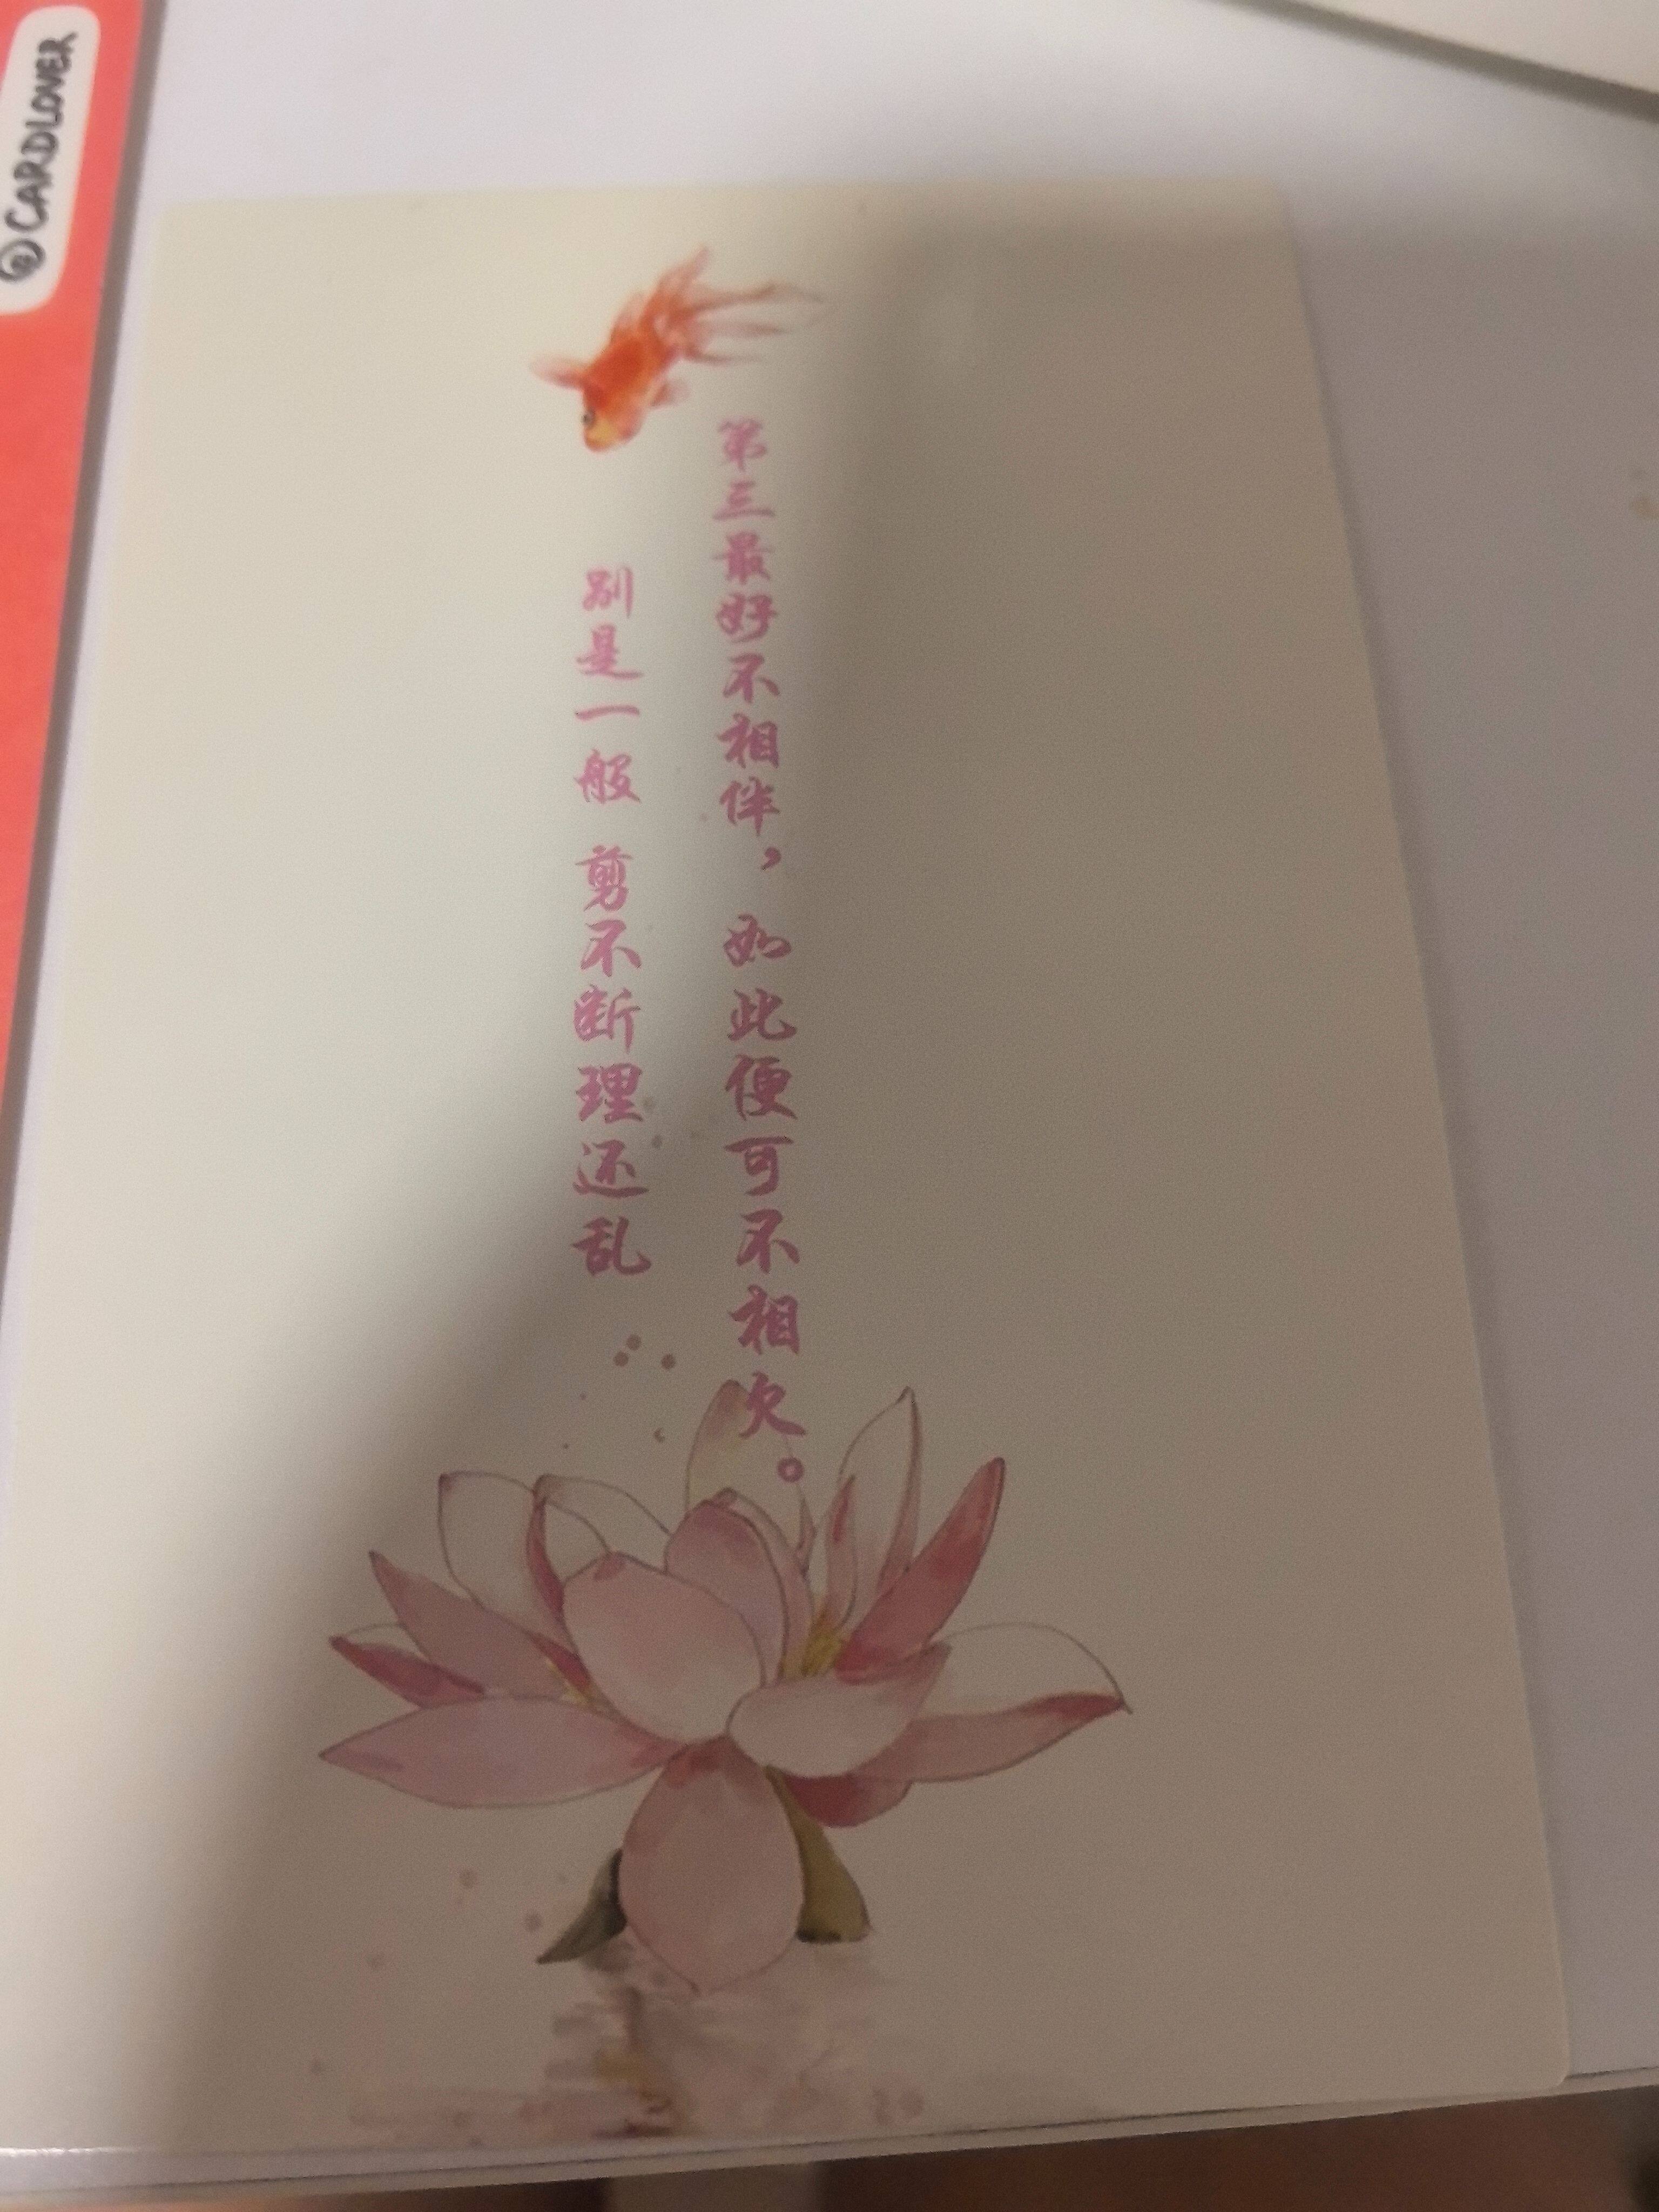 @CARDLOVER
第三最好不相伴，如此便可不相欠。
别是一般 剪不断理还乱